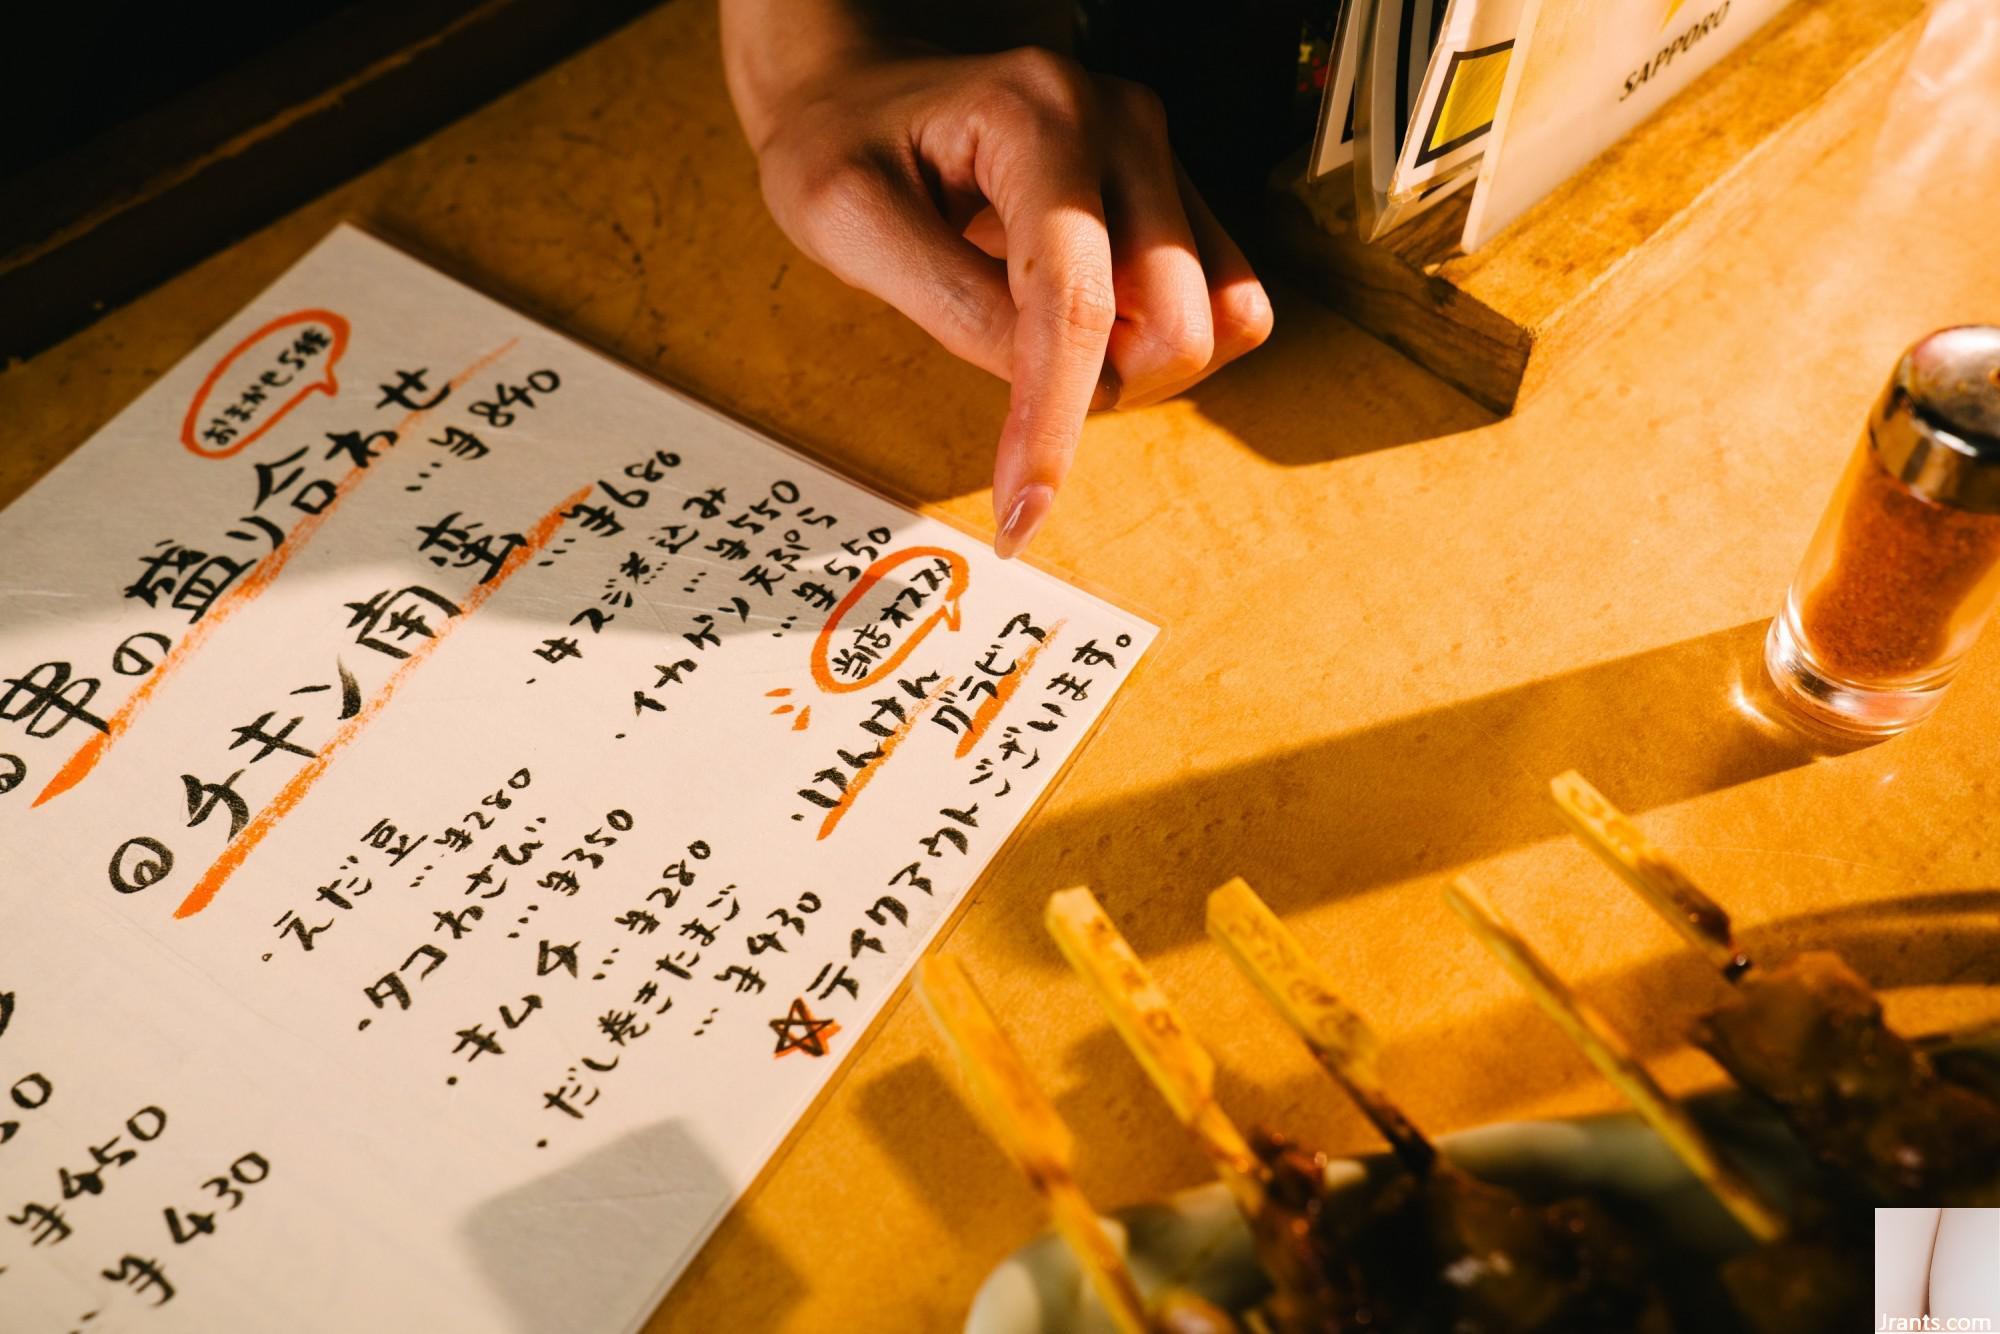 おまかせ5種
串の盛り合わせ
…¥840
@チキン南蛮
…¥680
・牛スジ煮込み
…¥550
・イカゲソ天ぷら
…¥550
当店オススメ
・けんけん
グラビア
・えだ豆
…¥280
・タコわさび
…¥350
・キムチ
…¥280
・だし巻きたまご
…¥430
☆テイクアウトございます。
¥450
¥430
SAPPORO
Jrants.com